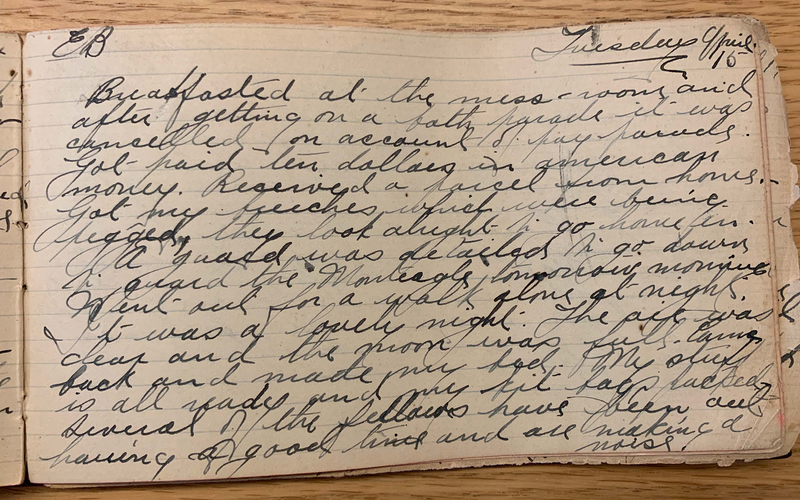 EB
Tuesday April 15
Breaffasted at the mess-room and
after getting on a bath parade it was
cancelled on account of pay parade.
Got paid ten dollars in american
money. Received a parcel from home.
Got my breeches which were being
pegged, they look alright to go home in.
A guard was detailed to go down
to guard the Montcalm tomorrow morning
Went out for a walk alone at night.
It was a lovely night. The air was
clear and the moon was full. Came
back and made my bed. My stuff
is all ready and my kit bags packed
Several of the fellows have been out
having a good time and are making a
noise.